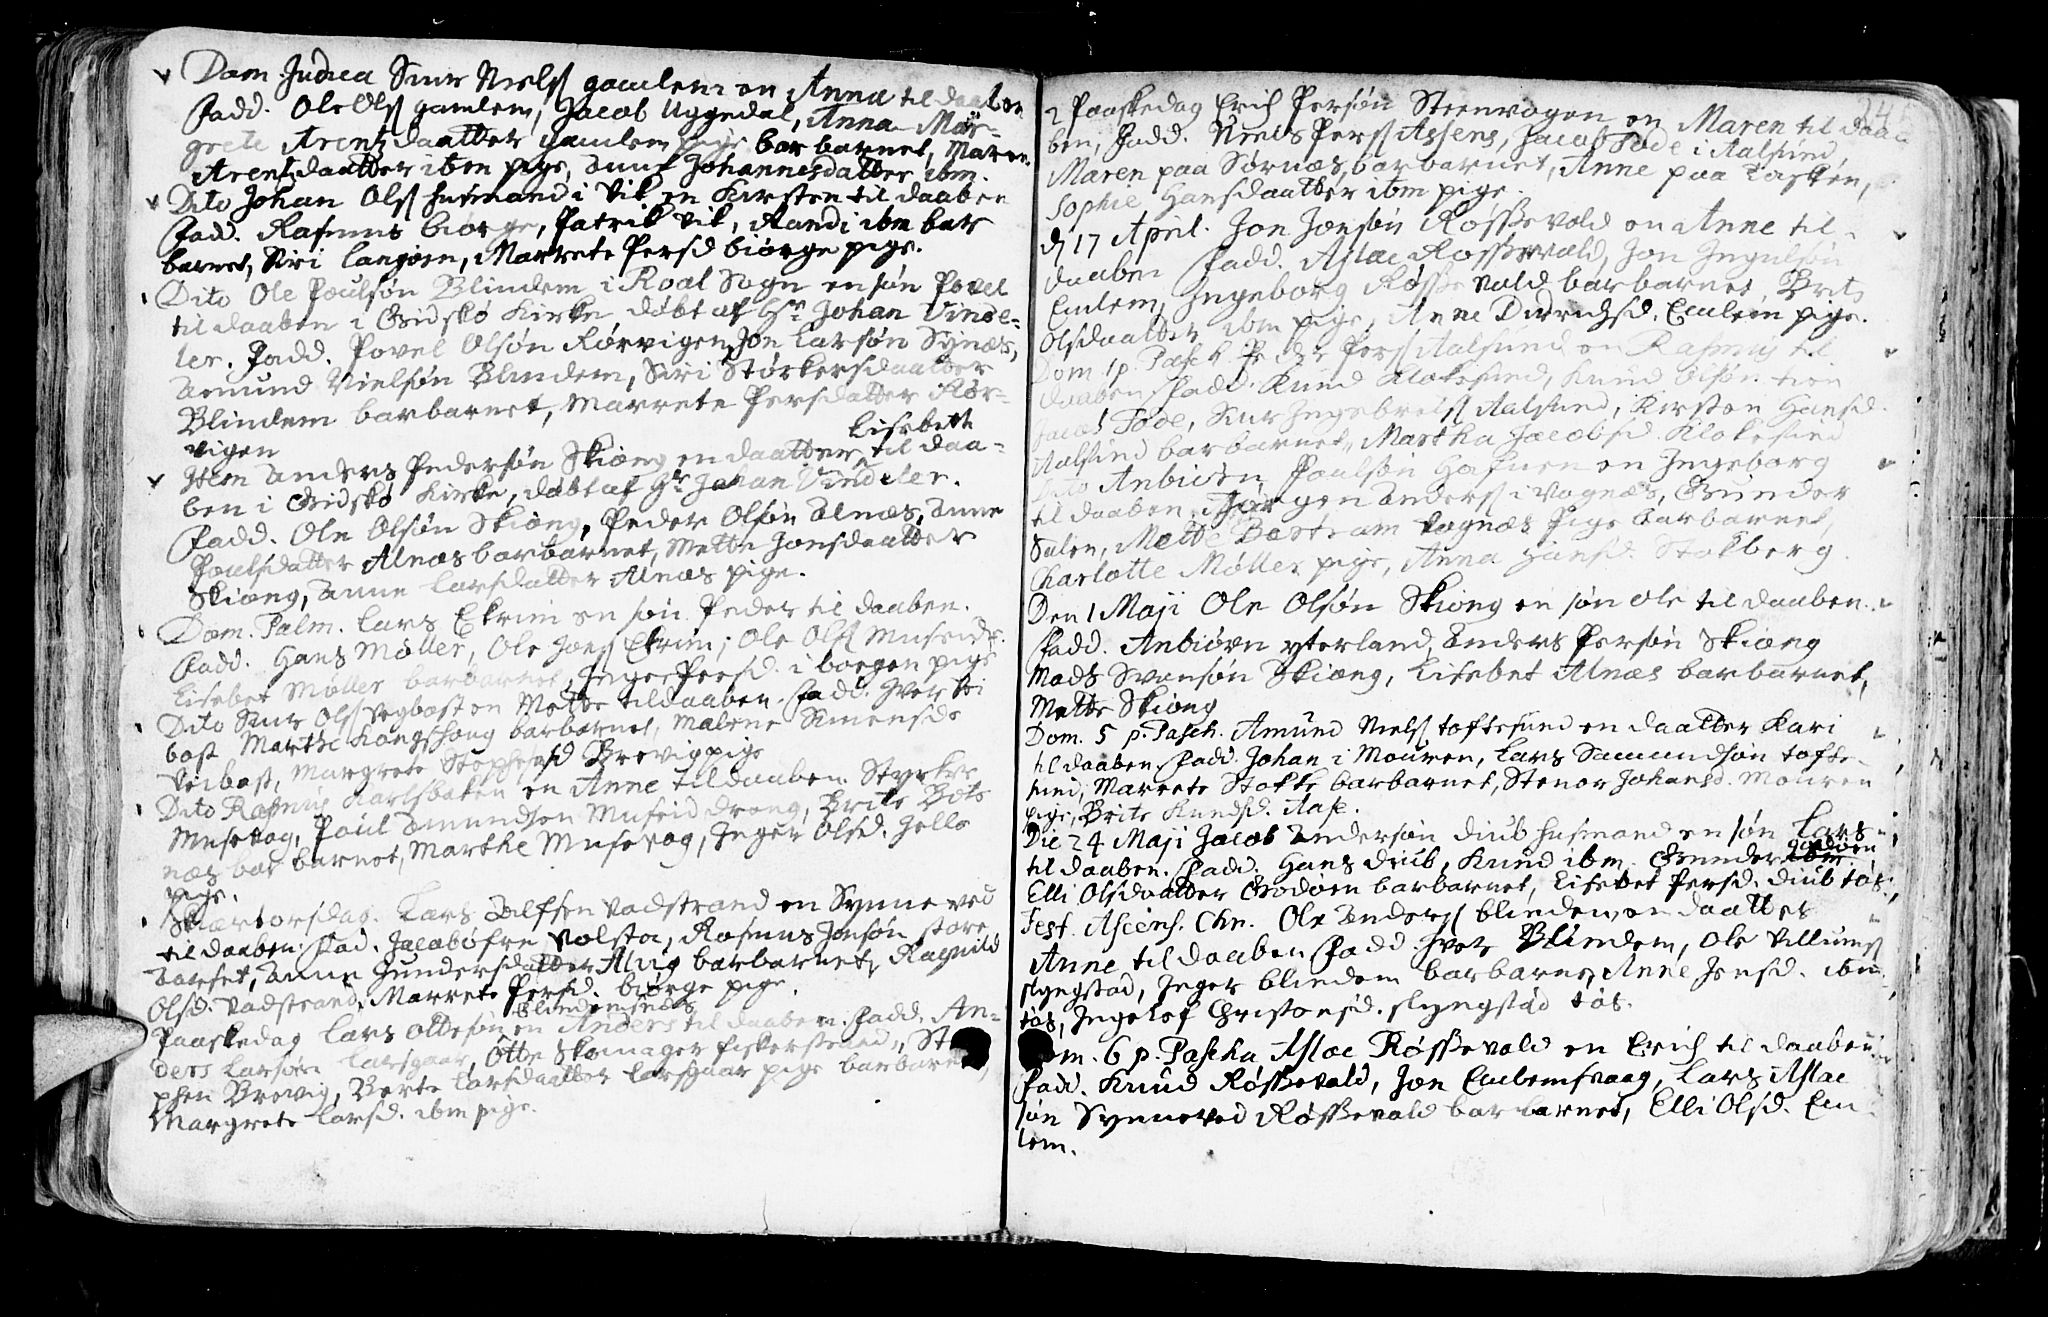 Dom. Judica Siur Nielss gamlem en Anna til daaben
Fadd. Ole Olss gamlem, Jacob Uggedal, Anna Mar-
grete Arentzdaatter gamlem pige bar barnet, Maren
Arentzdaatter ibm pige, Anne Johannesdatter ibm.
Dito Johan Olss husmand i Vik en Kirsten til daaben
Fadd. Rasmus biørge, Patrik Vik, Randi ibm bar
barnet, Siri langøen, Marrete Persd biørge pige.
Dito Ole Poulsøn Blindem i Roal Sogn en søn Povel
til daaben i Gidskø Kirke døbt af Hr Johan Vinde-
ler. Fadd. Povel Olsøn Rørvigen, Jon Larsøn Synnæs,
Amund Nielsøn Blindem, Siri Størkersdaatter
Blindem bar barnet, Marrete Persdatter Rør-
vigen
Item Anders Pedersøn Skiong en daatter Lisebeth til daa-
ben i Gidskø Kirke, døbt af Hr Johan Vindeler.
Fadd. Ole Olsøn Skiong, Peder Olsøn Alnæs, Anne
Poulsdatter Alnæs bar barnet, Mette Jonsdaatter
Skiong, Anne Larsdatter Alnæs pige.
Dom. Palm. Lars Ekrim en søn Peder til daaben.
Fadd. Hans Møller, Ole Jonss Ekrim, Ole Olss Museide.
Lisebet Møller bar barnet, Inger Persd. i borgen pige
Dito Siur Olss Vegbost en Mette til daaben. Fadd. Iver Vei
bost Marthe Kongshoug bar barnet, Malene Simensd.
Veibost, Margrete Stephensd Brevig pige
Dito Rasmus Karlsbaken en Anne til daaben Styrker
Musevog, Poul Amundsøn Museid dreng, Brite Bots
næs bar barnet, Marthe Musevog, Inger Olsd. Gells
pige.
Skiærtorsdag. Lars Zulfsøn Vadstrand en Synneved
til daaben. Fad. Jacob øfre Volstad, Rasmus Jonsøn store
Barset, Anne Gundersdatter Alvig bar barnet, Ragnild
Olsd. Vadstrand, Marrete Persd. biørge pige.
Paaskedag Lars Ottesøn Blindemsnæs en Anders til daaben. Fadd. An-
ders Larsøn Larsgaar, Otte Skomager fiskerstrand, Ste
phen Brevig, Berte Larsdaatter Larsgaar pige bar barnet,
Margrete Larsd. ibm pige.
2 Paaskedag Erich Persøn Steenvogen en Maren til daa-
ben, Fadd. Niels Perss Assens, Jacob Fode i Aalsund,
Maren paa Sørnæs bar barnet, Anne paa Tasken,
Sophie Hansdaatter ibm pige.
d. 17 April. Jon Jonsøn Røssevold en Anne til
daaben Fadd. Aslac Røssevold, Jon Ingulsøn
Emlem, Ingeborg Røssevold bar barnet, Brite
Olsdaatter ibm pige, Anne Didrichsd. Emlem pige.
Dom. 1 p. Pasch. Peder Perss Aalsund en Rasmus til
daaben Fadd. Knud Klokesund, Knud Olsøn
Jacob Fode, Siur Ingebrets Aalsund, Kirsten Hansd.
Aalsund bar barnet, Martha Jacobsd. Klokesund
Dito Anbiørn Poulsøn Hafnen en Ingeborg
til daaben, Jørgen Anderss i Vognæs, Gunder
Sulen, Mette Bostrøm Vognæs pige bar barnet,
Charlotte Møller pige, Anna Hansd. Stokberg
Den 1 Maji Ole Olsøn Skiong en søn Ole til daaben.
Fadd. Anbiørn yterland, Anders Persøn Skiong
Mads Svensøn Skiong, Lisebet Alnæs bar barnet,
Mette Skiong
Dom. 5 p. Pasch. Amund Nielss toftesund en daatter Kari
til daaben. Fadd. Johan i Mouren, Lars Samundsøn tofte-
sund, Marrete Stokke bar barnet, Stenor Johansd. Mouren
pige, Brite Knudsd. Aase.
Die 24 Maji Jacob Andersøn Diub husmand en søn Lars
til daaben. Fadd. Hans Diub, Knud ibm. Gunder Godøen
Elli Olsdaatter Godøen bar barnet, Lisebet Persd. Diub tøs.
Fest. Ascens. Chr. Ole Anderss blindem en daatter
Anne til daaben Fadd. Iver Blindem, Ole Villumss
slyngstad, Inger blindem bar barnet, Anne Jensd. ibm
tøs, Ingelof Christensd. slyngstad tøs.
Dom. 6 p. Pascha Aslac Røssevold en Erich til daaben
Fadd. Knud Røssevold, Jon Emblemsvaag, Lars Aslac
søn Synneved Røssevold bar barnet, Elli Olsd. Em
lem.